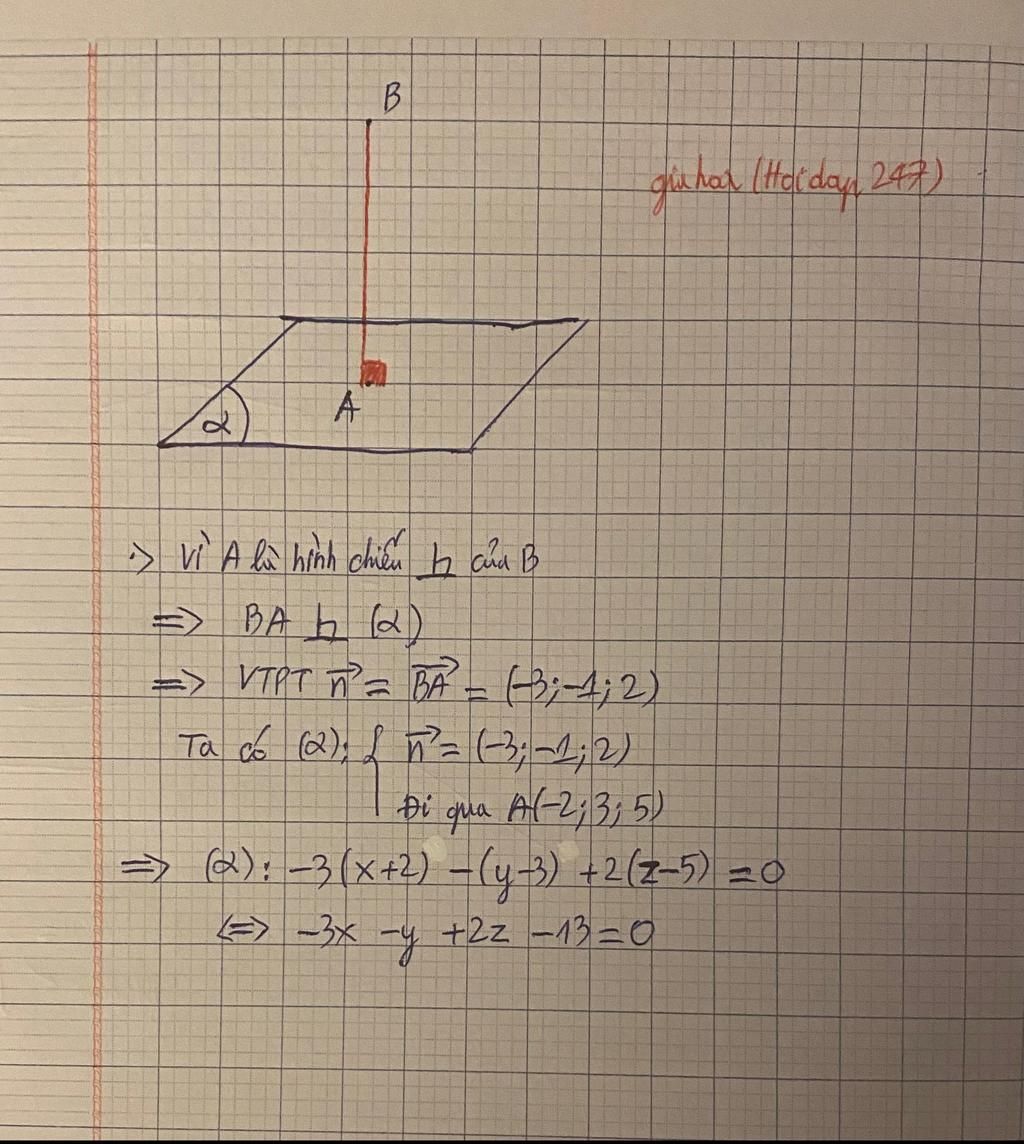 B
giahan (Hoidap 247)
A
α
·> Vì A là hình chiếu ⊥ của B
=> BA ⊥ (α)
=> VTPT n⃗ = BA⃗ = (-3;-1;2)
Ta có (α): { n⃗ = (-3;-1;2)
Đi qua A(-2;3;5)
=> (α): -3(x+2) -(y-3) +2(z-5) =0
<=> -3x -y +2z -13=0